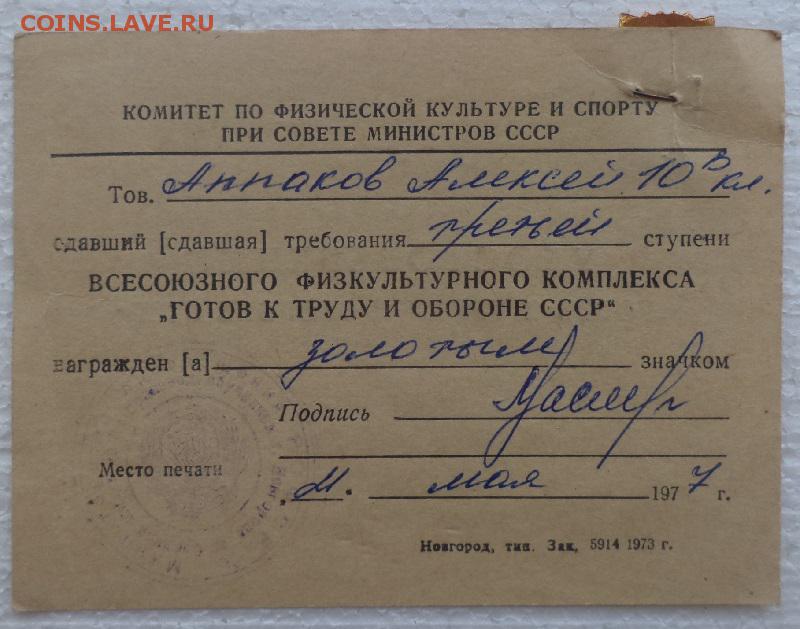 COINS.LAVE.RU
КОМИТЕТ ПО ФИЗИЧЕСКОЙ КУЛЬТУРЕ И СПОРТУ
ПРИ СОВЕТЕ МИНИСТРОВ СССР
Тов. Аппаков Алексей 10 в кл.
сдавший [сдавшая] требования третьей ступени
ВСЕСОЮЗНОГО ФИЗКУЛЬТУРНОГО КОМПЛЕКСА
„ГОТОВ К ТРУДУ И ОБОРОНЕ СССР“
награжден [а] золотым значком
Подпись
Место печати
мая 1977 г.
Новгород, тип. Зак, 5914 1973 г.